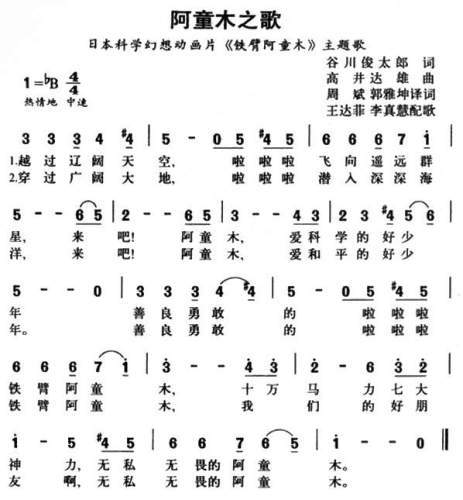 阿童木之歌
日本科学幻想动画片《铁臂阿童木》主题歌
谷川俊太郎 词
高井达雄 曲
周斌 郭雅坤译词
王达菲 李真慧配歌
1=♭B 4/4
热情地 中速
3 3 3 4 ♯4 | 5 - 0 5 ♯4 5 | 6 6 6 7 1̇ |
1.越过辽阔天空, 啦啦啦 飞向遥远群
2.穿过广阔大地, 啦啦啦 潜入深深海
5 - - 6 5 | 2 - - 6 5 | 3 - - 4 3 | 2 3 ♯4 5 6 |
星, 来吧! 阿童木, 爱科学的好少
洋, 来吧! 阿童木, 爱和平的好少
5 - - 0 | 3 3 3 4 ♯4 | 5 - 0 5 ♯4 5 |
年 善良勇敢的 啦啦啦
年。 善良勇敢的 啦啦啦
6 6 6 7 1̇ | 3̇ - - 4̇ 3̇ | 2̇ - 6 3̇ 2̇ |
铁臂阿童木, 十万马力七大
铁臂阿童木, 我们的好朋
1̇ - 5 ♯4 5 | 6 - 5 6 7 | 1̇ - - 0 ‖
神力,无私无畏的阿童木。
友啊,无私无畏的阿童木。